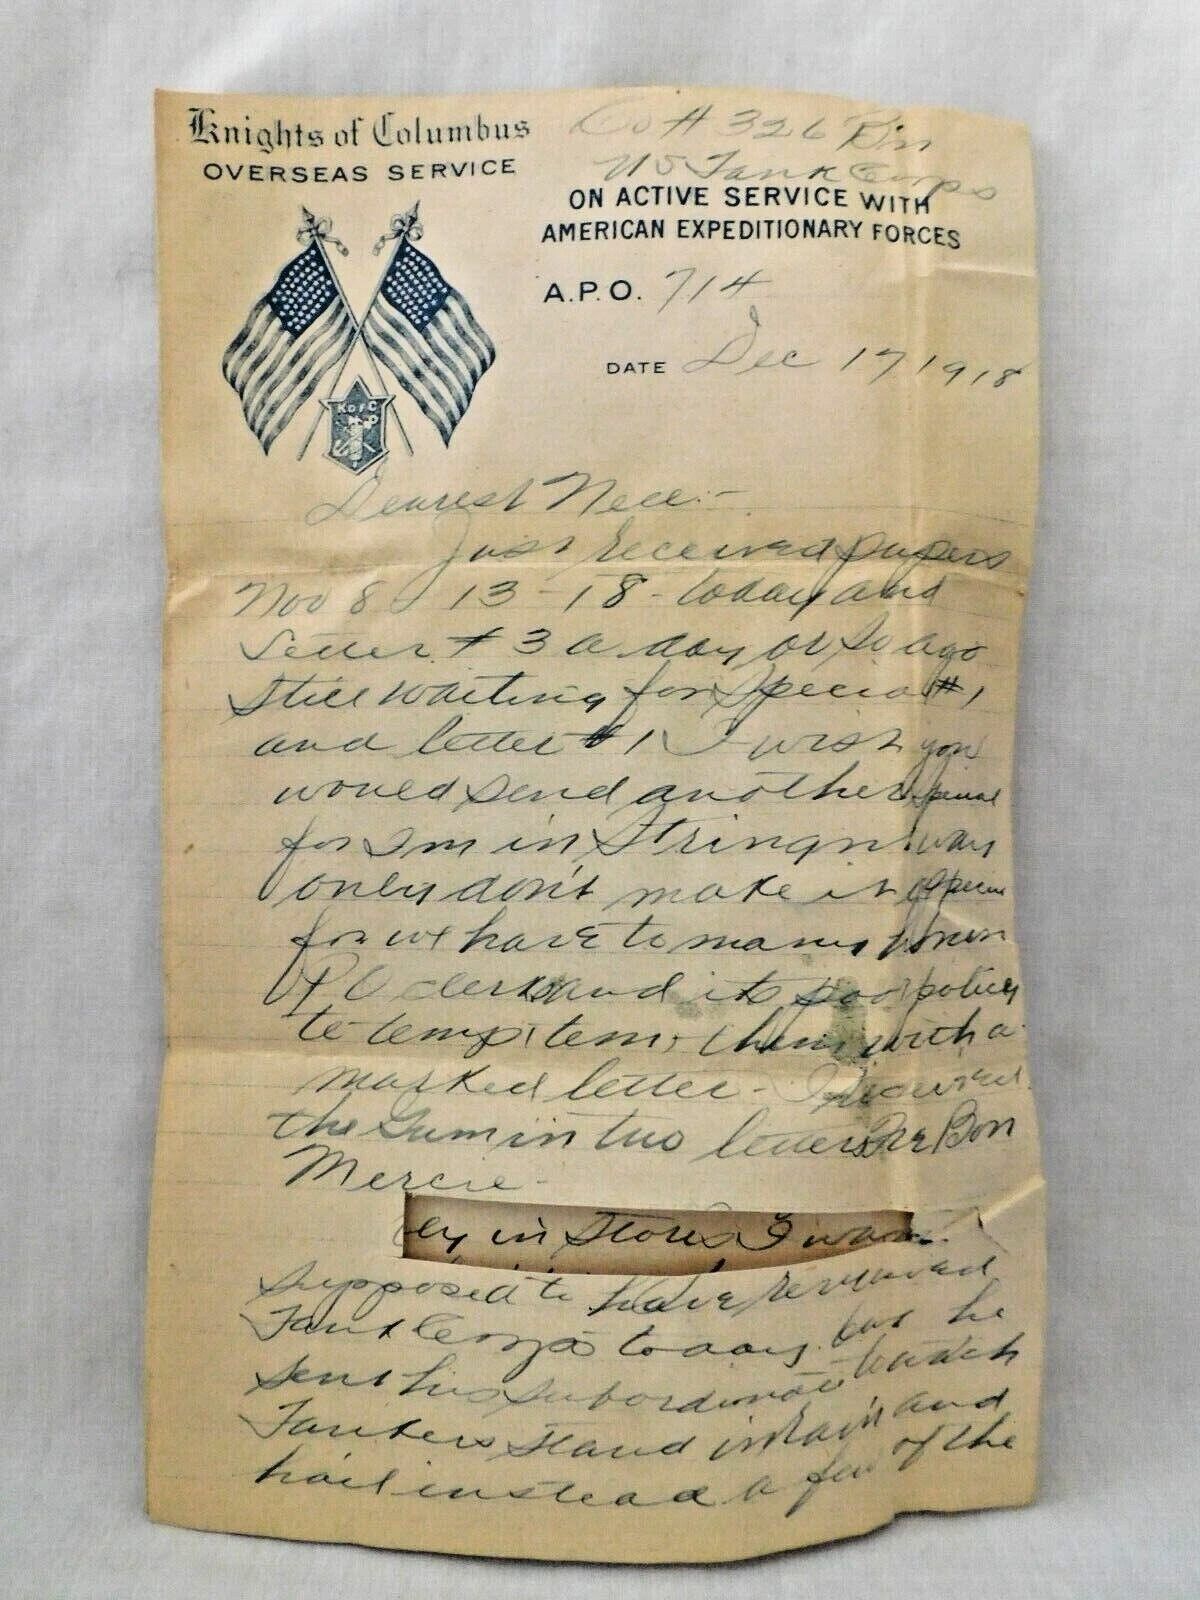 Knights of Columbus
OVERSEAS SERVICE
Co A 326 Bn
US Tank Corps
ON ACTIVE SERVICE WITH
AMERICAN EXPEDITIONARY FORCES
A.P.O. 714
DATE Dec 17 1918
K OF C
Dearest Nell:-
Just received papers
Nov 8 13-18- today and
Letter #3 a day or so ago
Still waiting for Special #1
and letter #1 I wish you
would send another special
for I'm in way
only don't make it
for we have to many
P O clerks and its poor policy
to temp them with a
marked letter- I received
the Gum in two letters Bon
Mercie-
in Stores I
supposed to have reviewed
Tank Corps today but he
sent his subordinate to watch
Tankers stand in rain and
hail instead a few of the